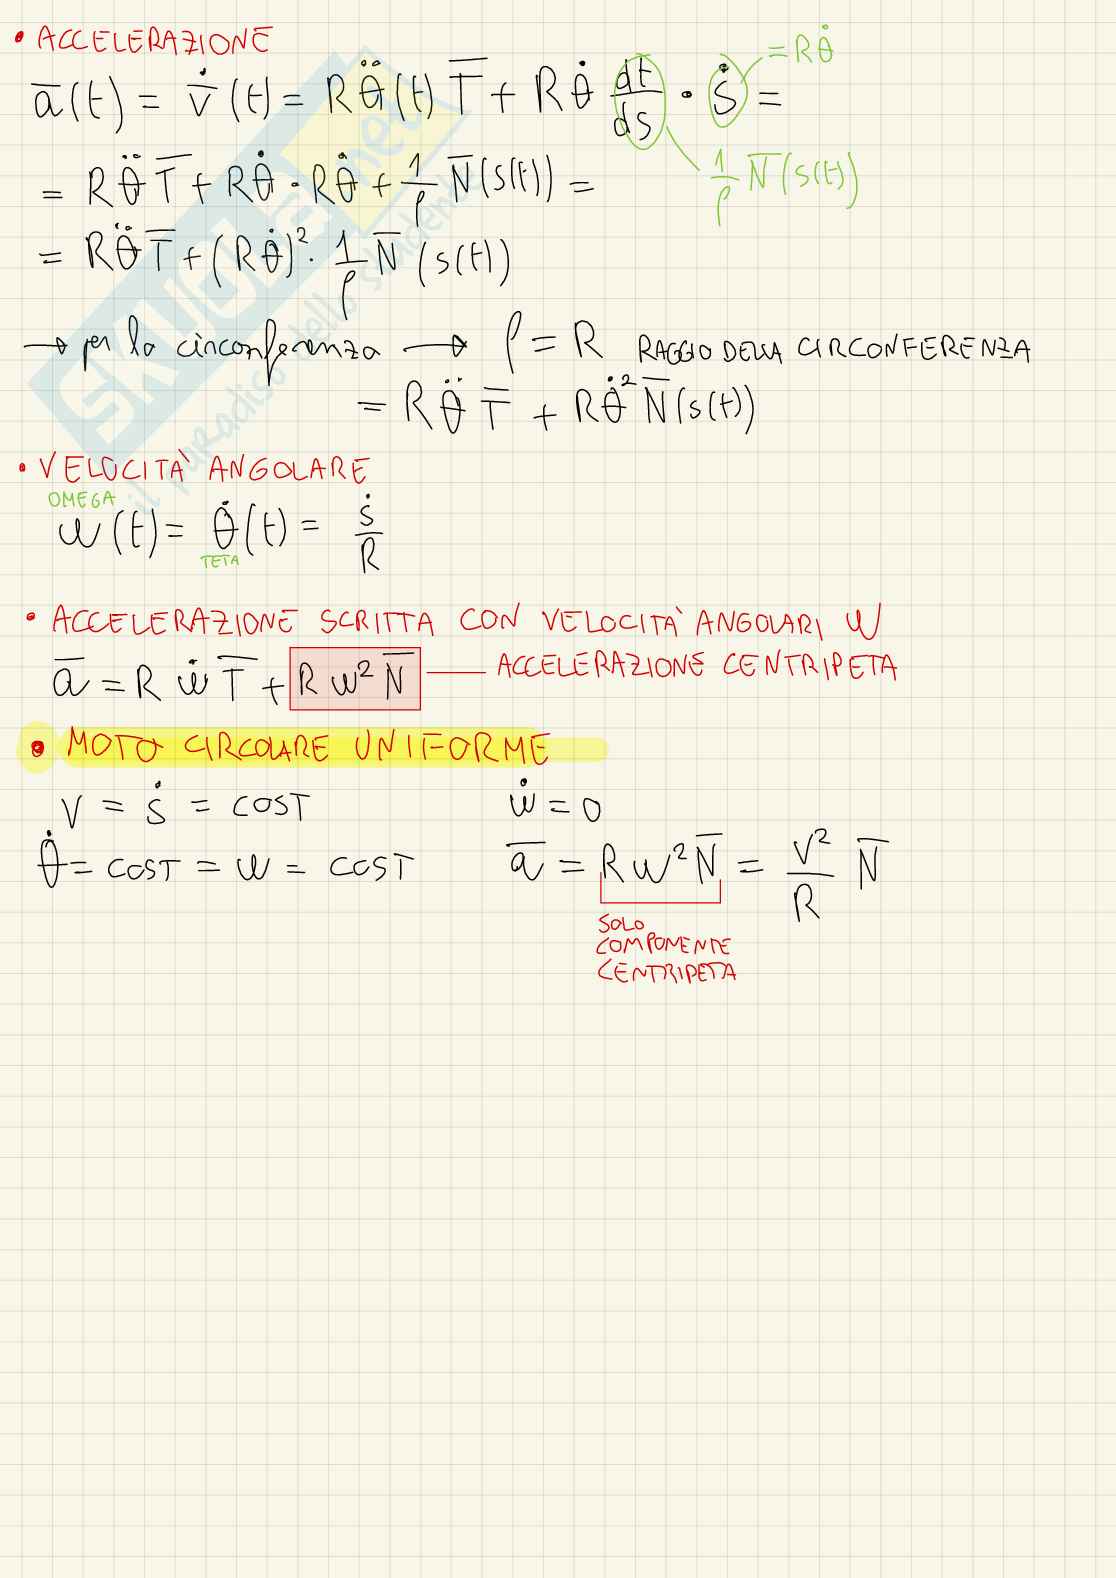 • ACCELERAZIONE
a̅(t) = v̅̇(t) = Rθ̈(t) T̅ + Rθ̇ dt/ds · ṡ =
= Rθ̇
1/ρ N̅(s(t))
= Rθ̈ T̅ + Rθ̇ · Rθ̇ + 1/ρ N̅(s(t)) =
= Rθ̈ T̅ + (Rθ̇)² · 1/ρ N̅(s(t))
→ per la circonferenza → ρ = R RAGGIO DELLA CIRCONFERENZA
= Rθ̈ T̅ + Rθ̇² N̅(s(t))
• VELOCITÀ ANGOLARE
OMEGA
ω(t) = θ̇(t) = ṡ/R
TETA
• ACCELERAZIONE SCRITTA CON VELOCITÀ ANGOLARI ω
a̅ = R ω̇ T̅ + R ω² N̅ — ACCELERAZIONE CENTRIPETA
• MOTO CIRCOLARE UNIFORME
v = ṡ = COST ω̇ = 0
θ̇ = COST = ω = COST a̅ = R ω² N̅ = v²/R N̅
SOLO
COMPONENTE
CENTRIPETA
SKUOLA.net
il paradiso dello studente